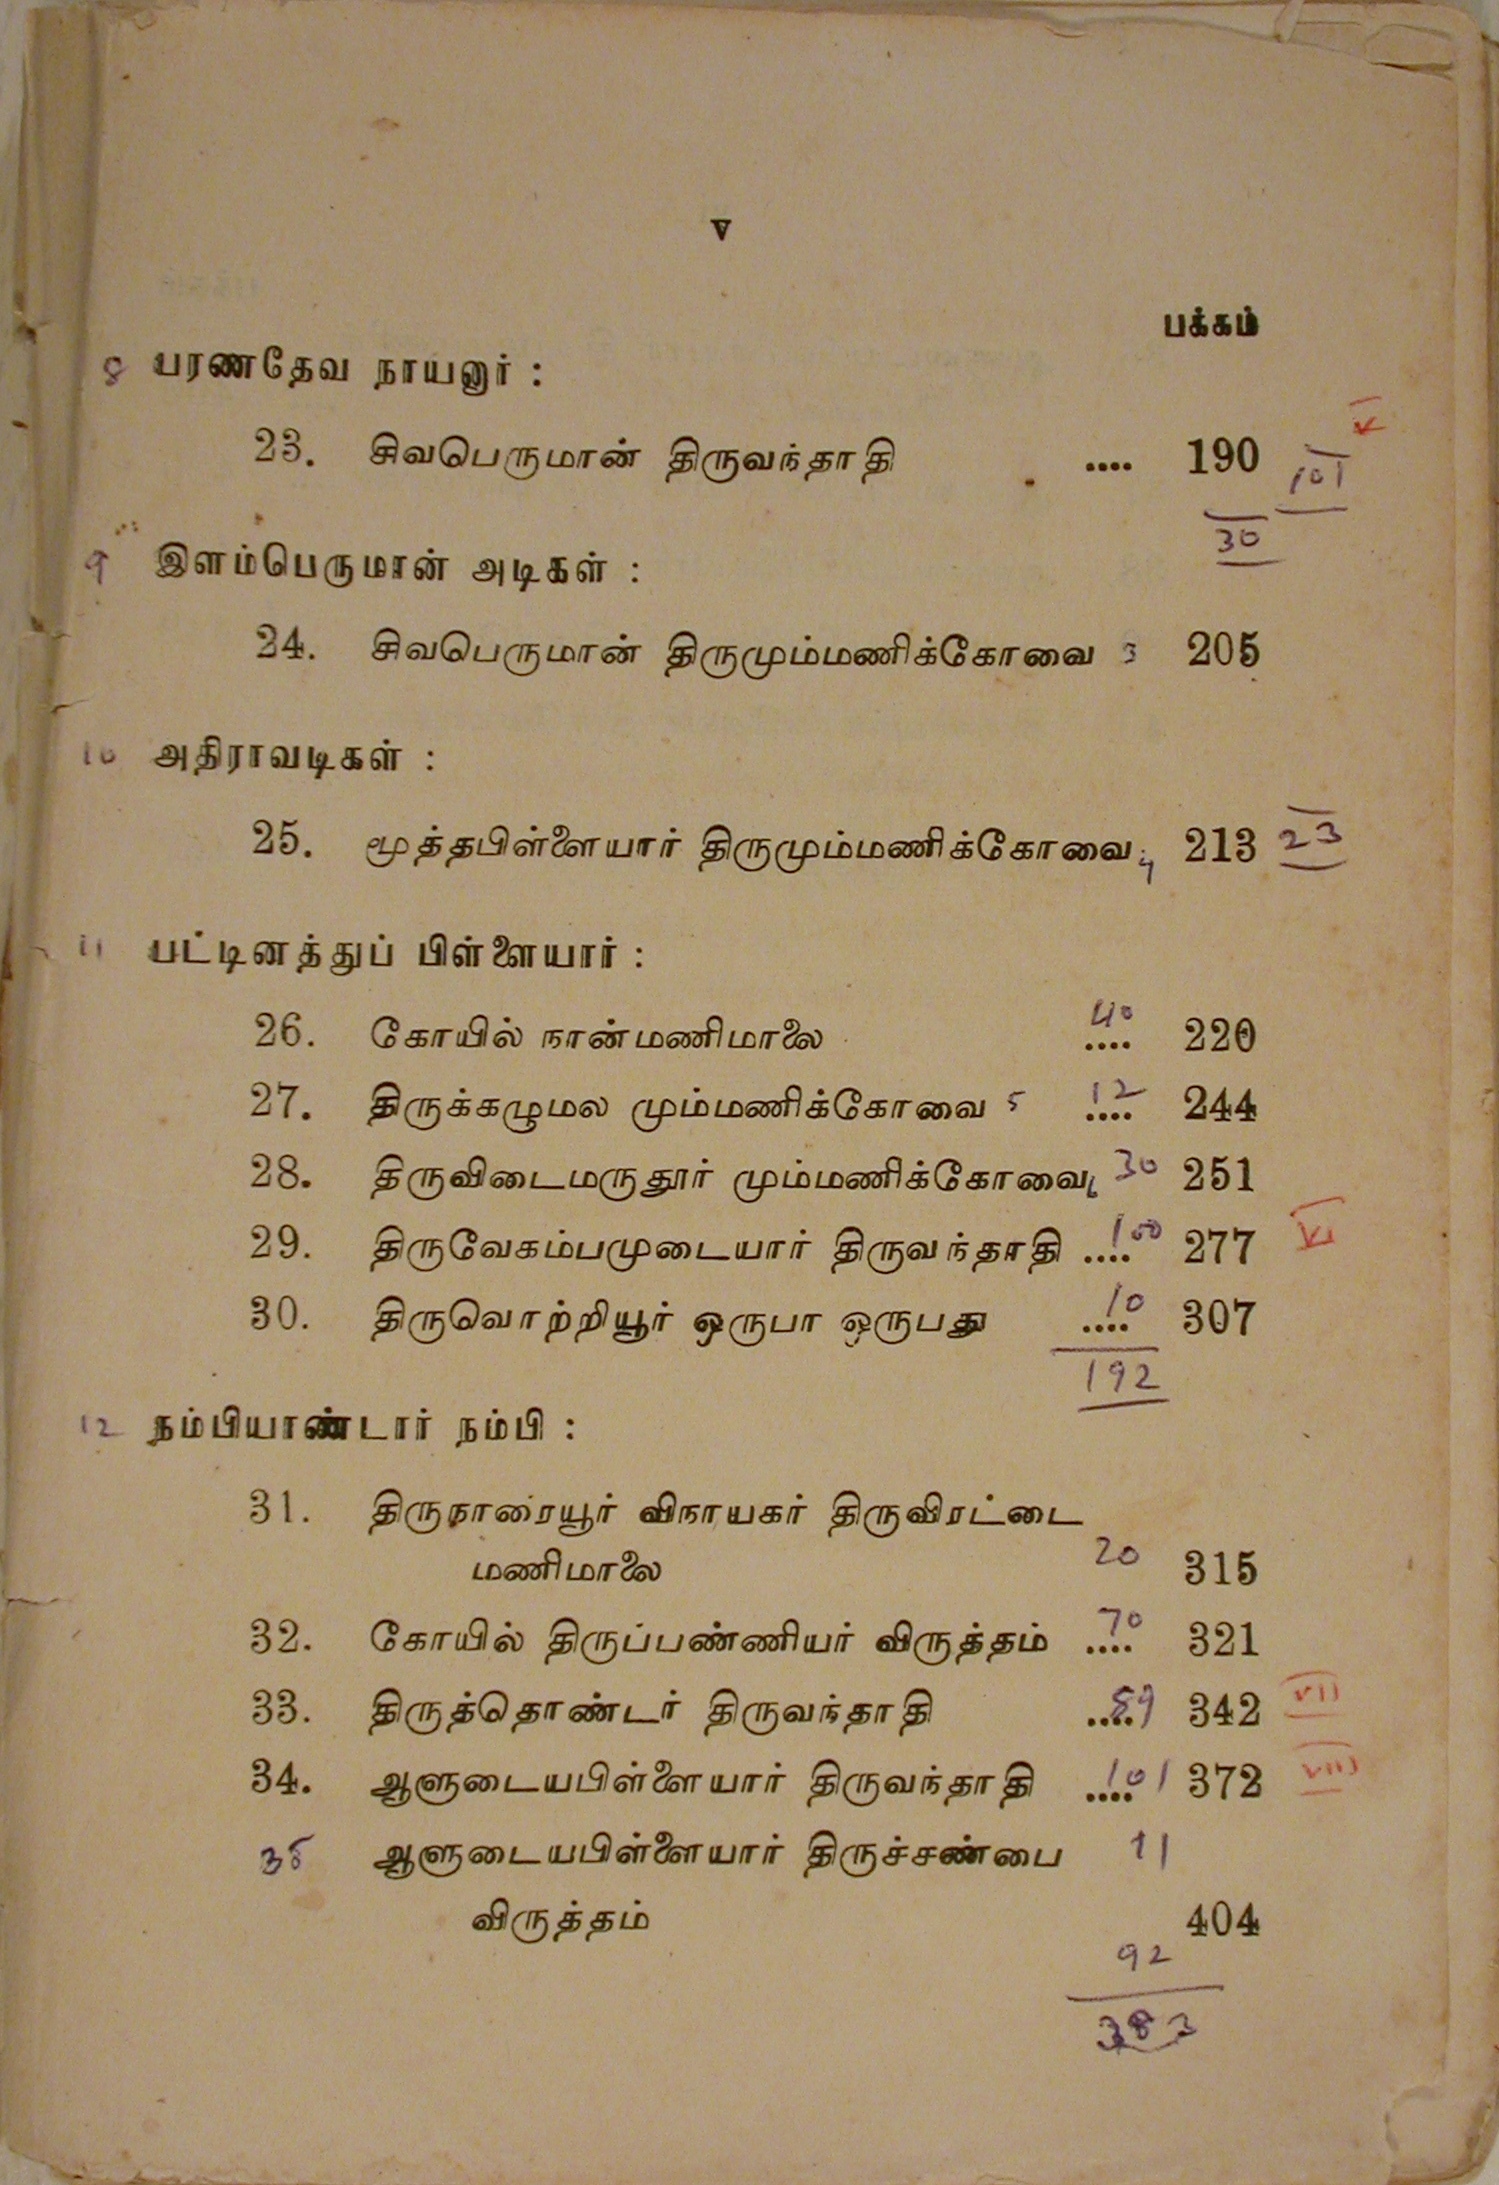 v
பக்கம்
8 பரணதேவ நாயனார் :
23. சிவபெருமான் திருவந்தாதி .... 190 101 V
30
9 இளம்பெருமான் அடிகள் :
24. சிவபெருமான் திருமும்மணிக்கோவை 3 205
10 அதிராவடிகள் :
25. மூத்தபிள்ளையார் திருமும்மணிக்கோவை 4 213 23
11 பட்டினத்துப் பிள்ளையார் :
26. கோயில் நான்மணிமாலை .... 40 220
27. திருக்கழுமல மும்மணிக்கோவை 5 .... 12 244
28. திருவிடைமருதூர் மும்மணிக்கோவை 6 30 251
29. திருவேகம்பமுடையார் திருவந்தாதி .... 100 277 VI
30. திருவொற்றியூர் ஒருபா ஒருபது .... 10 307
192
12 நம்பியாண்டார் நம்பி :
31. திருநாரையூர் விநாயகர் திருவிரட்டை
மணிமாலை 20 315
32. கோயில் திருப்பண்ணியர் விருத்தம் .... 70 321
33. திருத்தொண்டர் திருவந்தாதி .... 89 342 VII
34. ஆளுடையபிள்ளையார் திருவந்தாதி .... 101 372 VIII
35 ஆளுடையபிள்ளையார் திருச்சண்பை 11
விருத்தம் 404
92
383